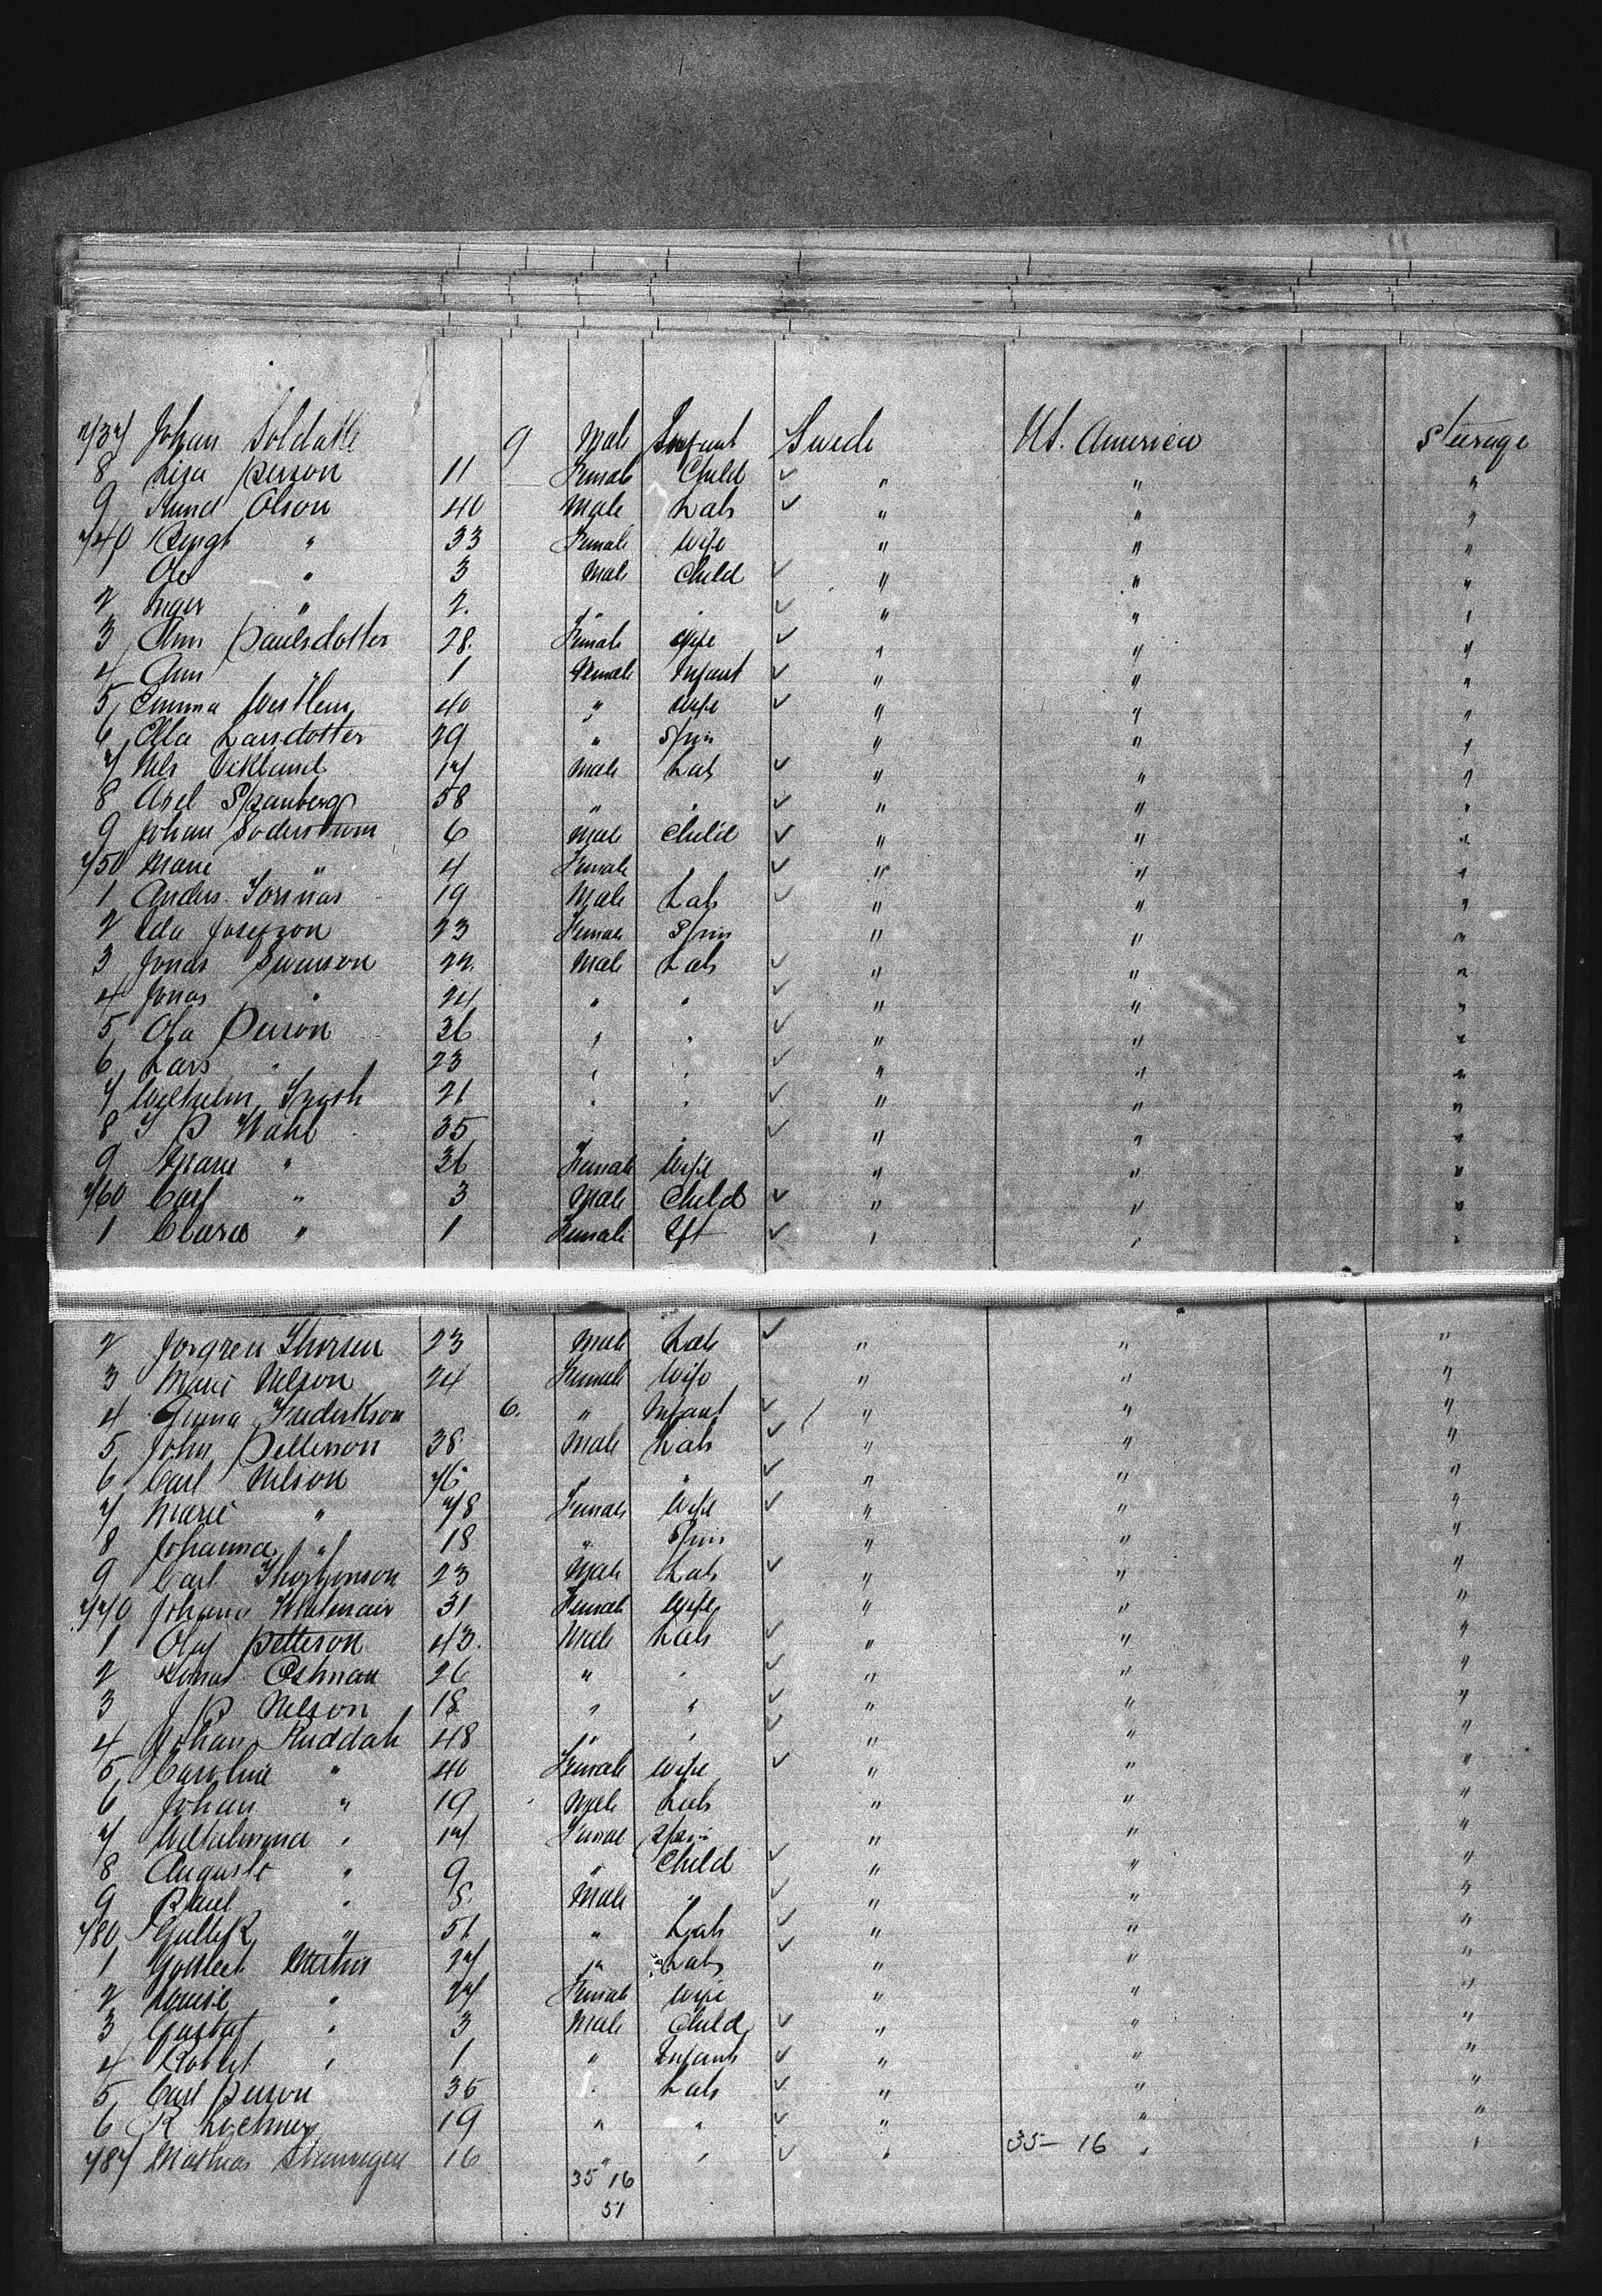 737 Johan Soldath 9 Male Infant Swede U.S. America Steerage
8 Liza Person 11 Female Child ✓ " " "
9 Knud Olson 40 Male Lab ✓ " " "
740 Bengt " 33 Female Wife " " "
1 Ole " 3 Male Child ✓ " " "
2 Inger " 2. " " ✓ " " "
3 Ann Paulsdotter 28. Female Wife ✓ " " "
4 Ann 1 Female Infant ✓ " " "
5 Emma 40 " Wife ✓ " " "
6 Ella Larsdotter 29 " Spin " " "
7 Nels Wiklund 17 Male Lab ✓ " " "
8 Axel Spanberg 58 " " ✓ " " "
9 Johan Soderstrom 6 Male Child ✓ " " "
750 Marie " 4 Female ✓ " " "
1 Anders 19 Male Lab ✓ " " "
2 Ida Josefson 23 Female Spin " " "
3 Jonas Swenson 22. Male Lab ✓ " " "
4 Jonas " 24 " " ✓ " " "
5 Ola Person 36 " " ✓ " " "
6 Lars " 23 " " ✓ " " "
7 Wilhelm 21 " " ✓ " " "
8 P Wahl 35 " " ✓ " " "
9 Marie " 36 Female Wife " " "
760 Carl " 3 Male Child ✓ " " "
1 Clara " 1 Female Ift ✓ " " "
2 Jorgren Thorsen 23 Male Lab ✓ " " "
3 Marie Nelson 24 Female Wife " " "
4 Frederkson 6. " Infant ✓ " " "
5 John Petterson 38 Male Lab ✓ " " "
6 Carl Nelson 76 " " ✓ " " "
7 Marie " 78 Female Wife ✓ " " "
8 Johanna " 18 " Spin " " "
9 Carl 23 Male Lab ✓ " " "
770 Johana 31 Female Wife " " "
1 Olaf Petterson 43. Male Lab ✓ " " "
2 Jonas Ostman 26 " " ✓ " " "
3 J P Nelson 18 " " ✓ " " "
4 Johan Ruddah 48 " " ✓ " " "
5 Caroline " 40 Female Wife ✓ " " "
6 Johan " 19 Male Lab " " "
7 Wilhelmina " 17 Female Spin " " "
8 Auguste " 9 " Child ✓ " " "
9 Paul " 8 Male " ✓ " " "
780 " 51 " Lab ✓ " " "
1 27 " Lab ✓ " " "
2 Louise " 27 Female Wife " " "
3 Gustaf " 3 Male Child ✓ " " "
4 Robert " 1 " Infant ✓ " " "
5 Carl Person 35 " Lab ✓ " " "
6 R Lochner 19 " " ✓ " " "
787 Mathias 16 " " ✓ " 35-16 " "
35 16
51